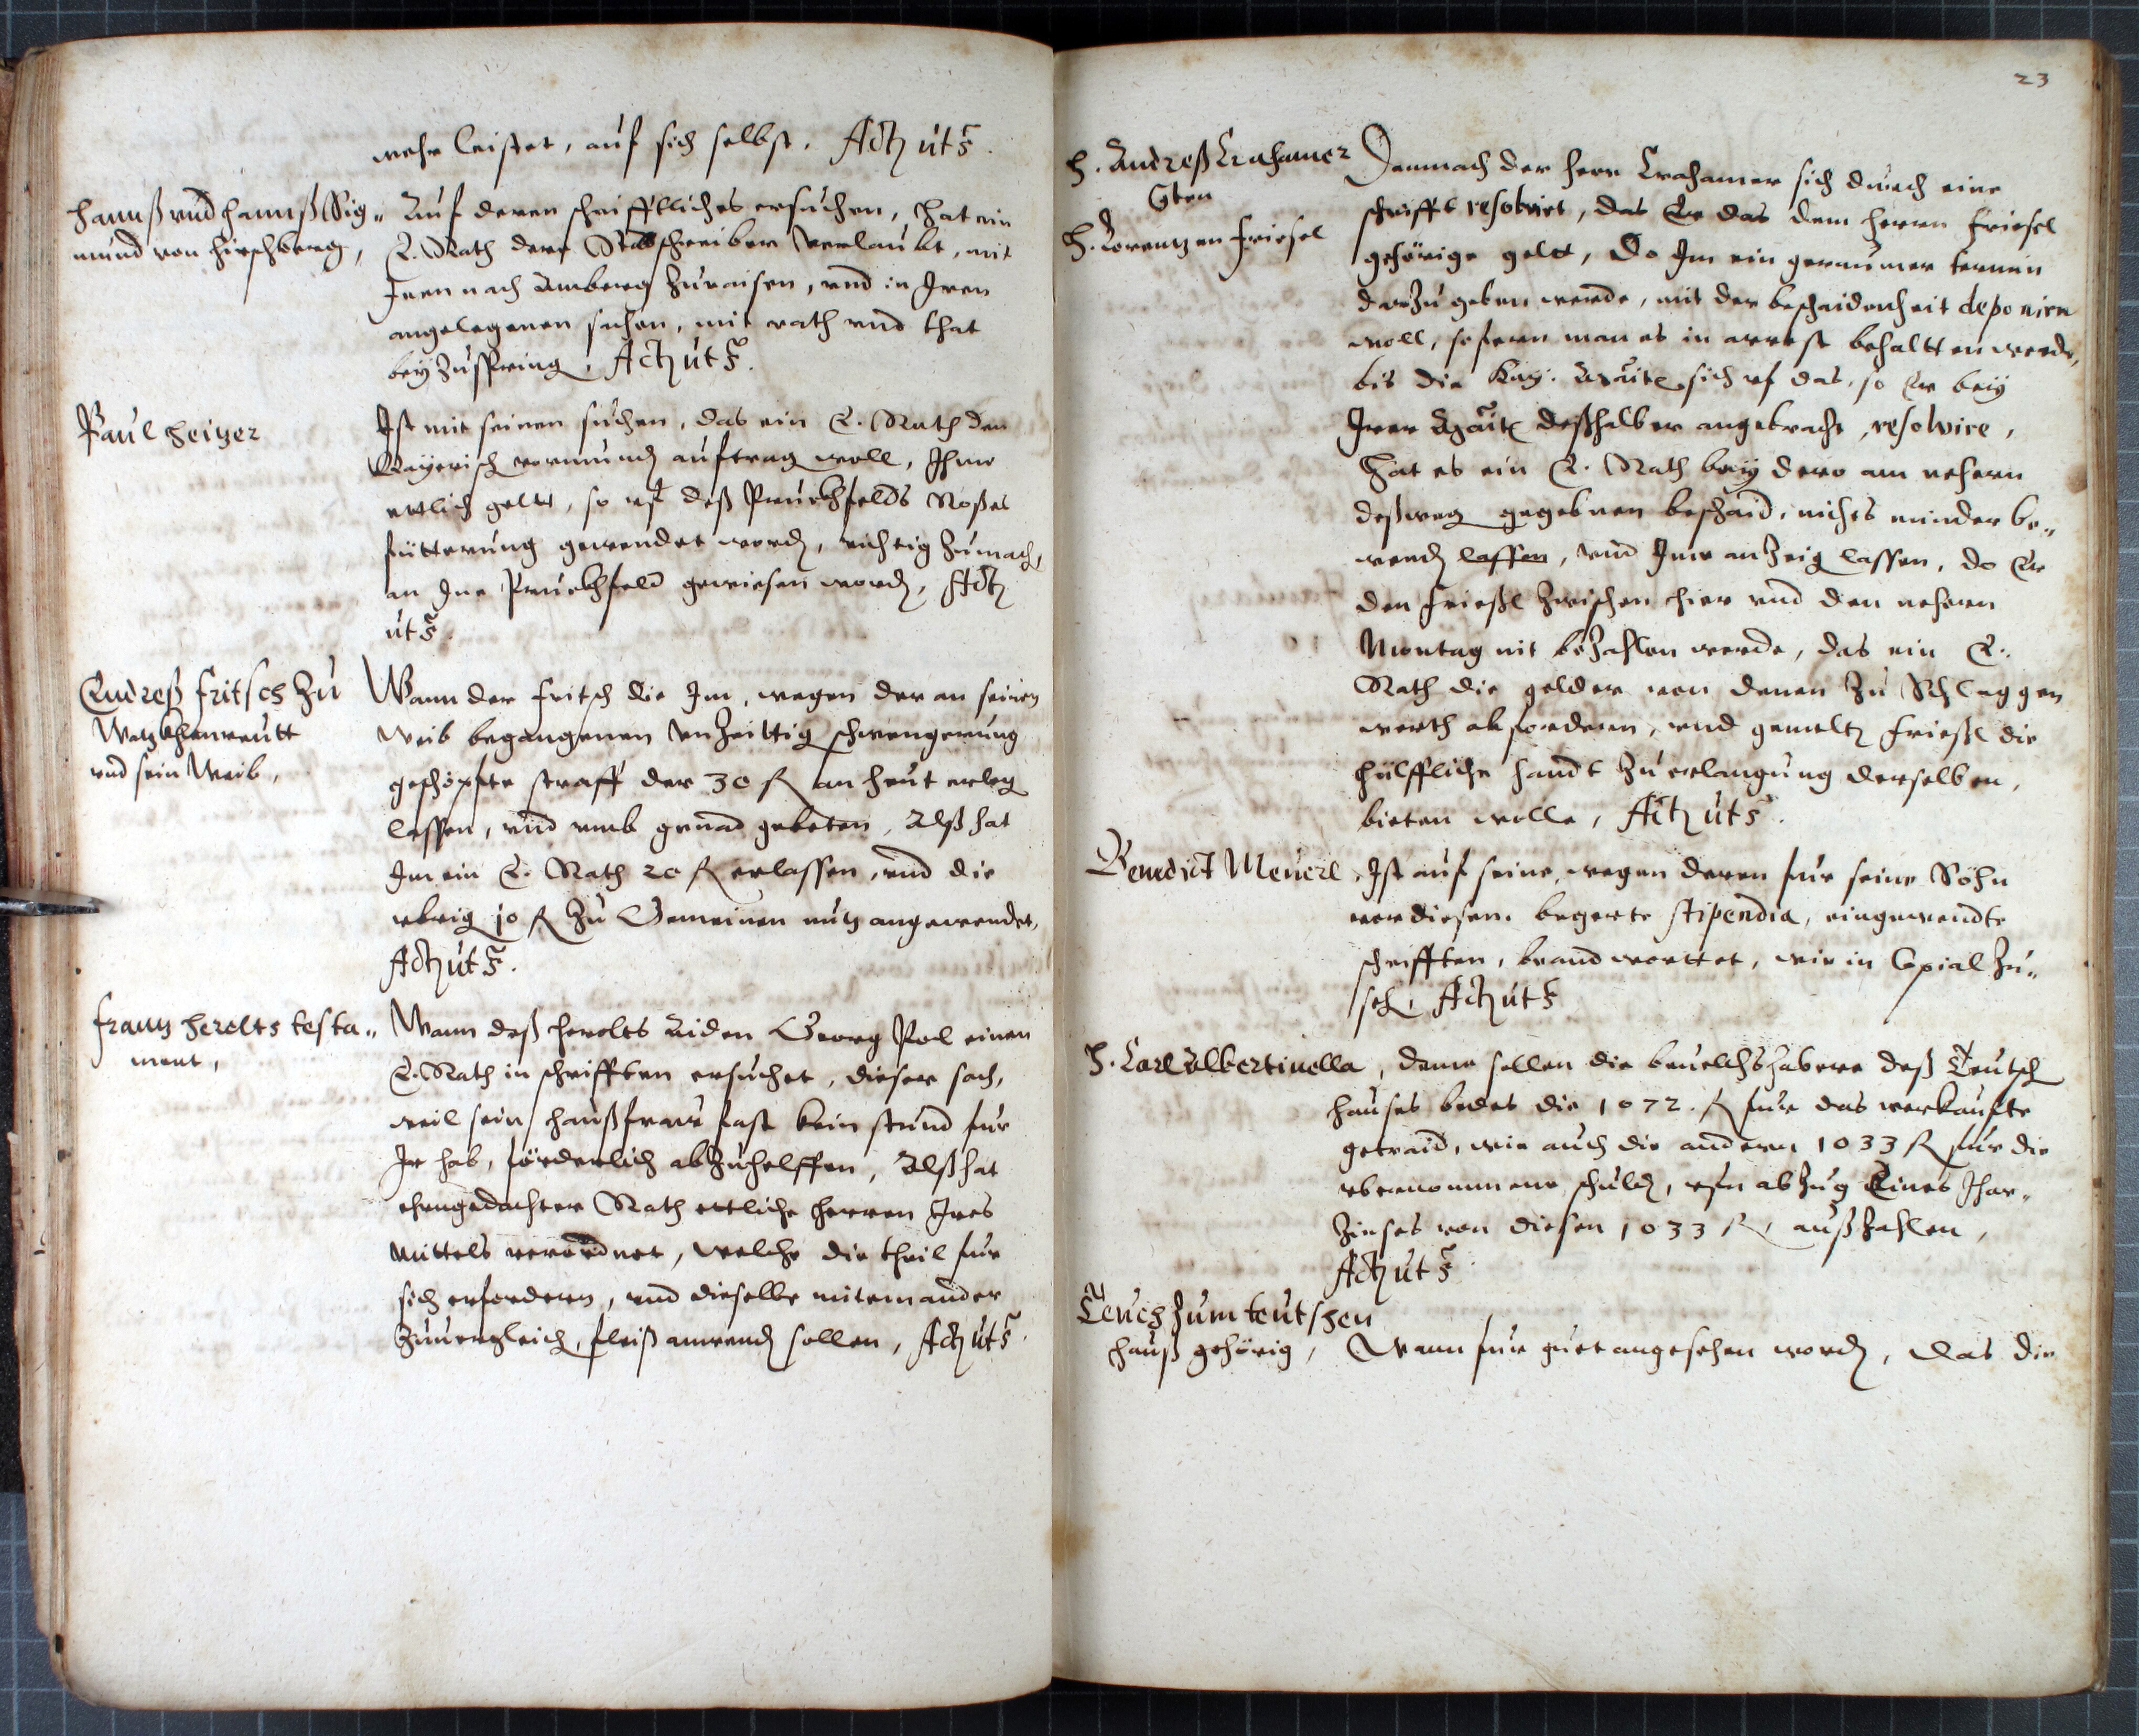 wehr leistet, auf sich selbst. Actum ut s.
Hannß vnd Hannß Sig-
mund von Hirschberg,
Auf deren schrifftliches ersuchen, hat ein
E. Rath dero Stattschreiber verlaubt, mit
Inen nach Amberg zuraisen, vnd in Iren
angelegenen sachen, mit rath vnd that
beyzuspring. Actum ut s.
Paul Heitzer
Ist mit seinen suchen, das ein E. Rath den
Mayerisch vormund auftrag woll, Ihme
ettlich gelt, so vf deß Pruckhfelds Roßes
fütterung gewendet word, richtig zumach,
an Ine Pruckhfeld gewiesen word, Actum
ut s.
Endreß Fritsch zu
Watzkhenreutt
vnd sein Weib,
Wann der Fritsch die Im, wegen der an seinen
Weib begangenen Vnzeittig schwengerung
geschöpfte straff der 30 fl an heut erleg
lassen, vnd vmb genad gebeten, Alß hat
Im ein E. Rath 20 fl erlassen, vnd die
vbrig 10 fl zu Gemeinen nutz angewendet,
Actum ut s.
Frantz Herolts testa-
ment,
Wann deß Herolts Aiden Georg Pock einen
E. Rath in schrifften ersuchet, dieser sach,
weil sein haußfraw fast kein stund für
Ir hab, förderlich abzuhelffen, Alß hat
ehrngedachter Rath ettliche herren Ires
Mittels verordnet, welche die theil für
sich erfordern, vnd dieselbe miteinander
zuuergleich, fleiß anwend sollen, Actum ut s.
23
H. Andreß Crahamer
Gten
H. Lorentzen Friesel
Demnach der Herr Crahamer sich durch eine
schrifft resolvirt, das Er das dem Herrn Friesel
gehörige gelt, Do Im ein geraumer termin
darzu geben werde, mit der beschaidenheit deponirn
woll, sofern man es in arrest behaltten werde,
bis die Kay: Mait. sich vf das, so Er bey
Irer Mait. deßhalber angebracht, resolvire,
Hat es ein E. Rath bey dero am nehern
deßweg gegebnen beschaid, nichts minder be-
wend lassen, vnd Ime anzeig lassen, do Er
den Frießl zwischen hier vnd den nehern
Montag nit bezahlen werde, das ein E.
Rath die gelder von denen zu Schlaggen
werth abfordern, vnd gemelt Frießl die
hülffliche handt zu erlangung derselben,
bieten wolle, Actum ut s.
Benedict Meuerl
Ist auf seine, wegen deren für seine Söhn
vor diesem begerte stipendia, eingewendte
schrifften, beandworttet, wie in Copial zu-
seh, Actum ut s
H. Carl Albertinella, deme sollen die beuelchshabere deß Teutsch
hauses bedes die 1072. fl für das verkaufte
getraid, wie auch die andern 1033 fl für die
vbernommene schuld, ohn abzug Eines Ihar-
zinses von diesen 1033 fl, außzahlen,
Actum ut s
Teuch zum teutschen
hauß gehörig,
Wann für guet angesehen word, das die